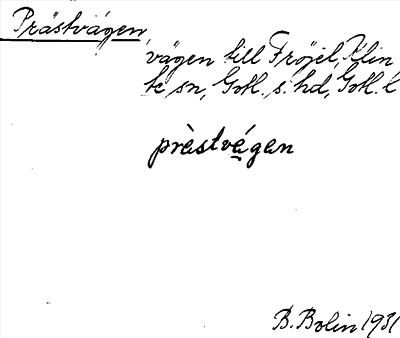 Prästvägen,
vägen till Fröjel, Klin
te sn, Gotl. s. hd, Gotl. l
prästvägen
B. Bolin 1931